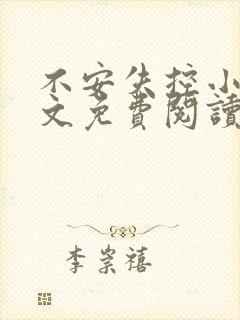 不安失控小
文免費閱讀
李崇禧